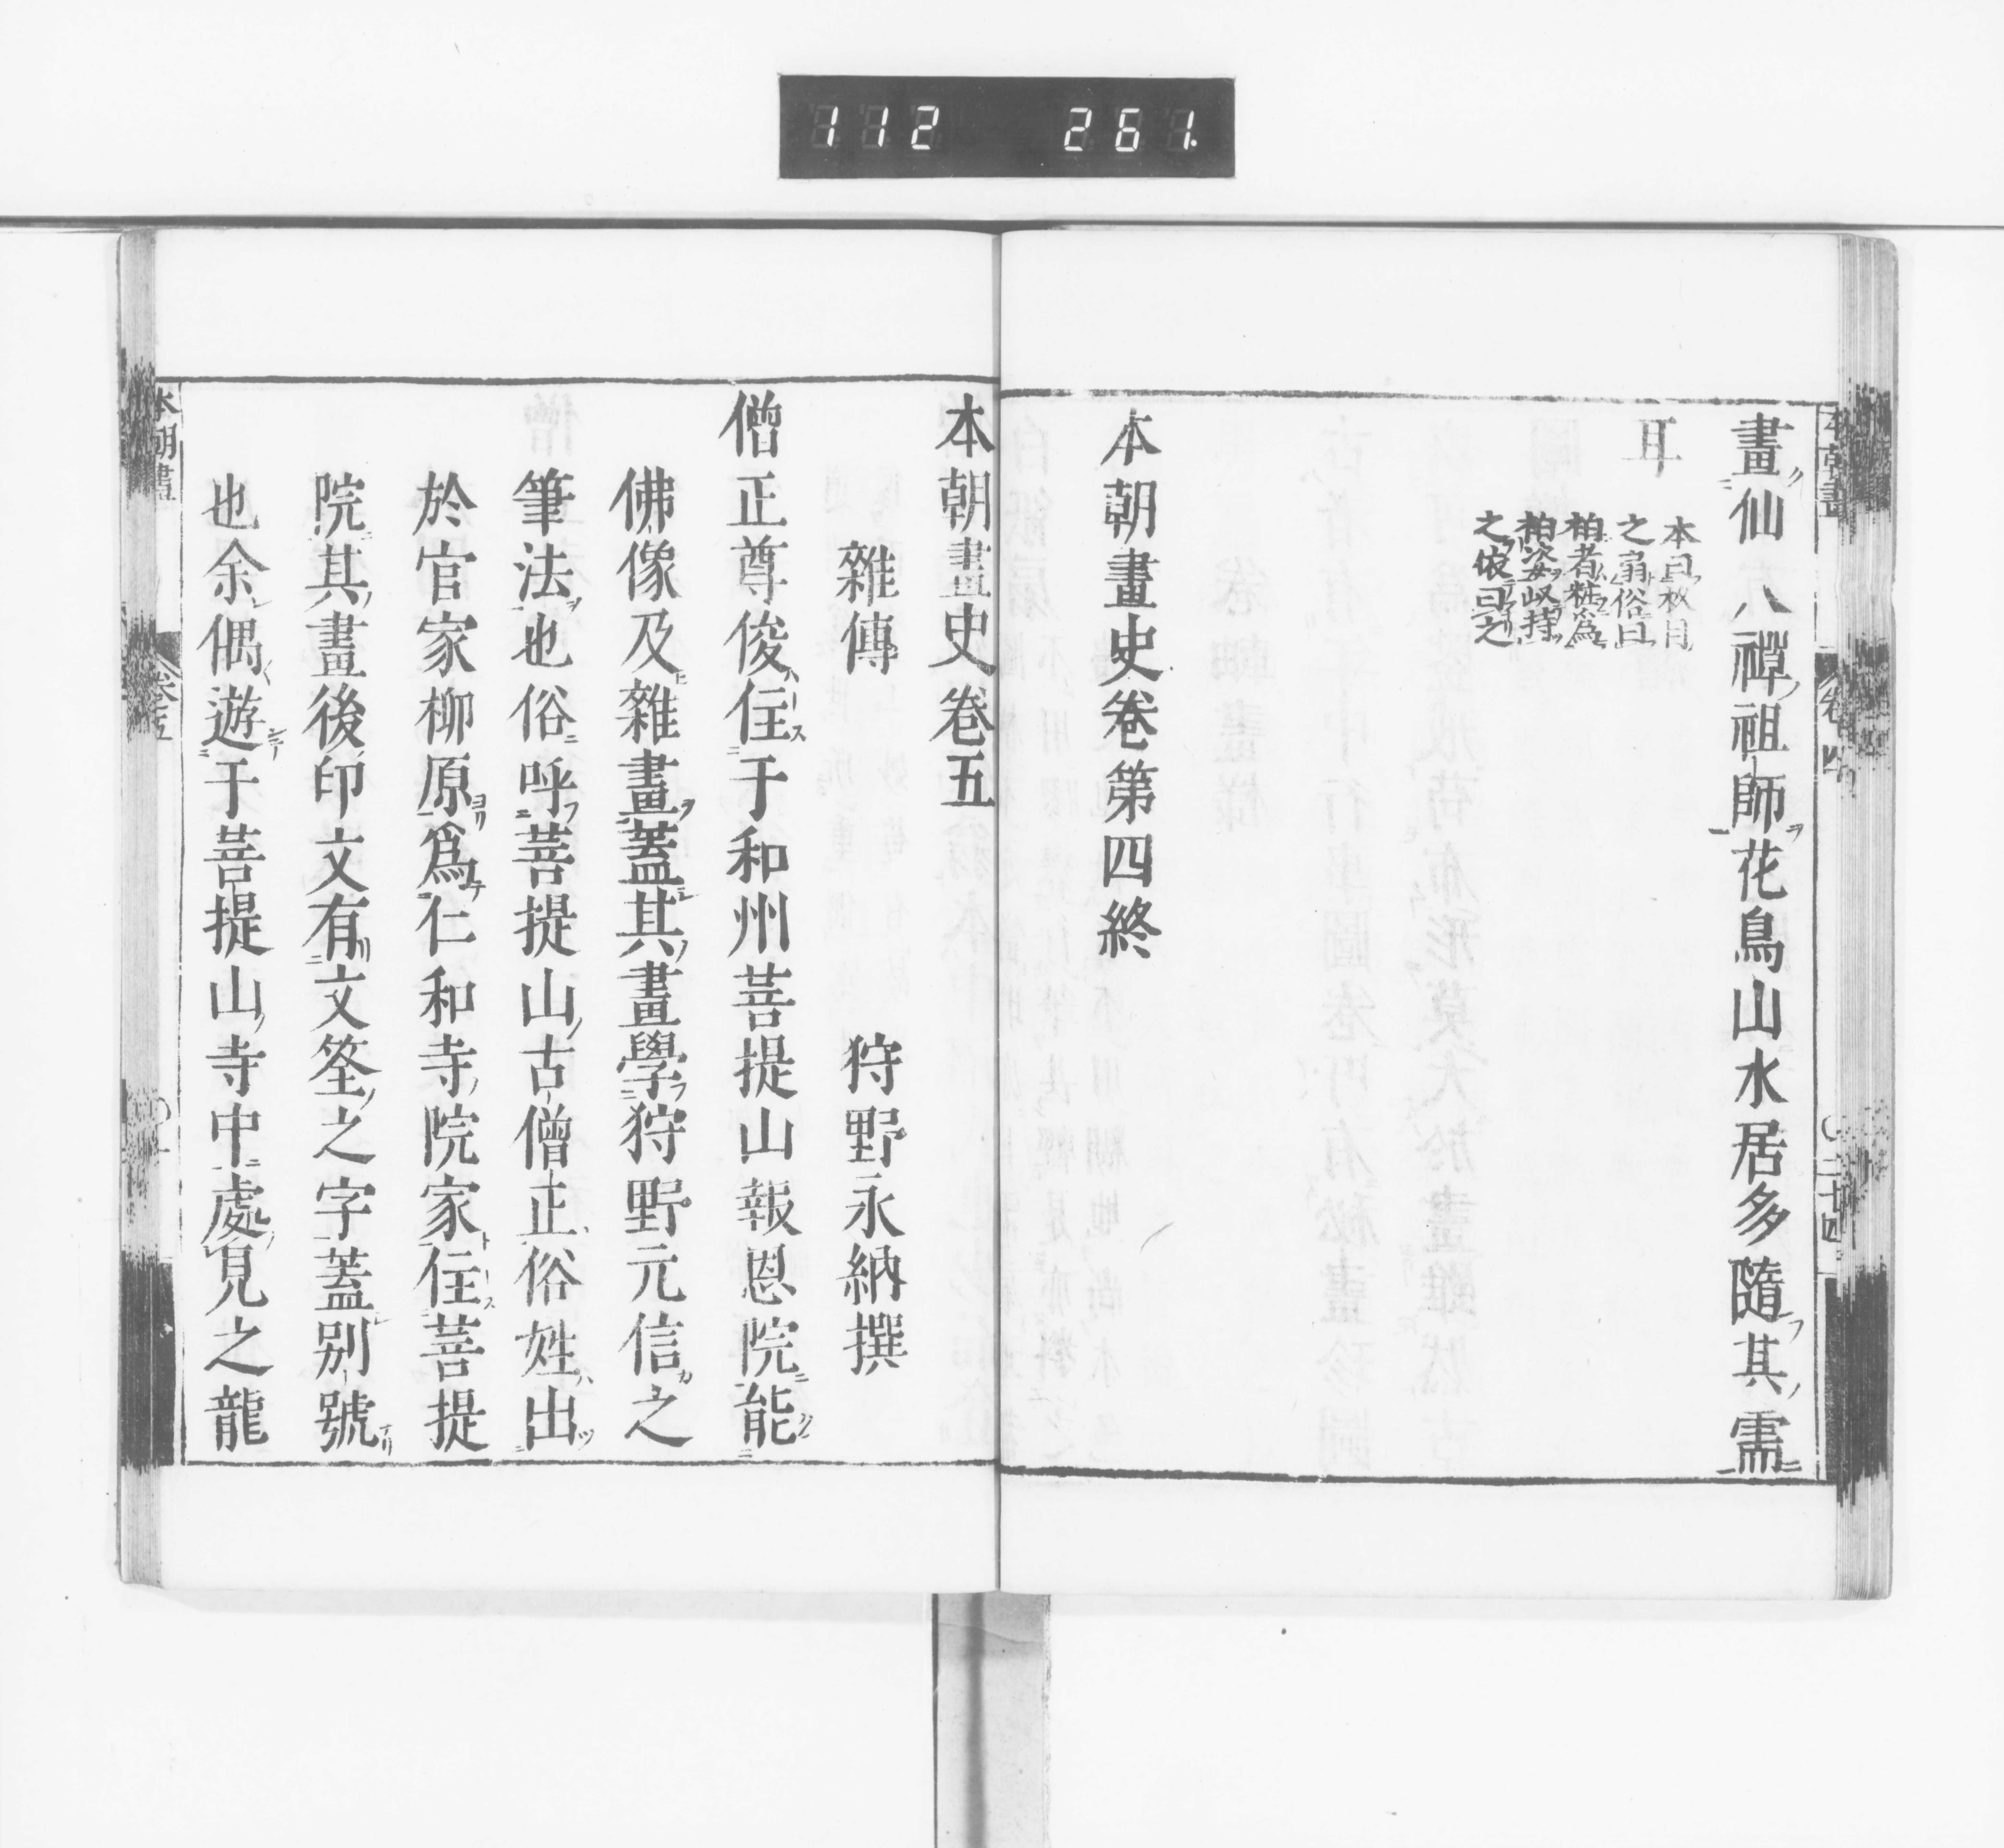 112 261.
畫仙八禪祖師花鳥山水居多隨其需
耳
本曰敉目
之扇俗曰
柏者粧為
柏姿以持
之依曰之
本朝畫史卷第四終
本朝畫史卷五
雜傳 狩野永納撰
僧正尊俊住于和州菩提山報恩院能
佛像及雜畫蓋其畫學狩野元信之
筆法也俗呼菩提山古僧正俗姓出
於官家柳原爲仁和寺院家住菩提
院其畫後印文有文筌之字蓋別號
也余偶遊于菩提山寺中處見之龍
本朝畫 卷五